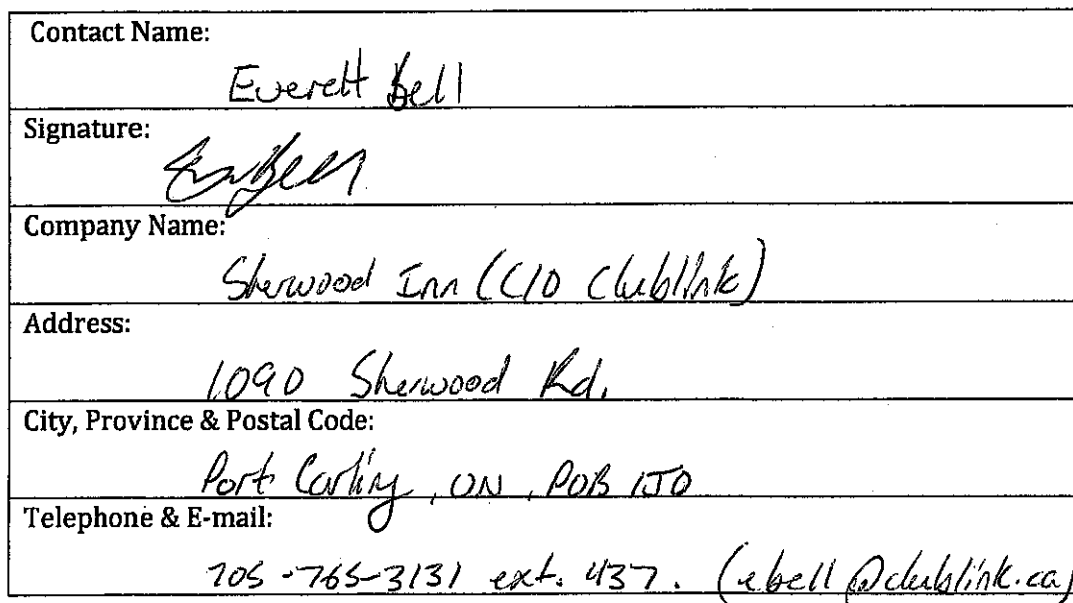 Contact Name:
Everett Bell
Signature:
Company Name:
Sherwood Inn (C/O Clublink)
Address:
1090 Sherwood Rd.
City, Province & Postal Code:
Port Carling, ON, P0B 1J0
Telephone & E-mail:
705-765-3131 ext. 437. (ebell@clublink.ca)